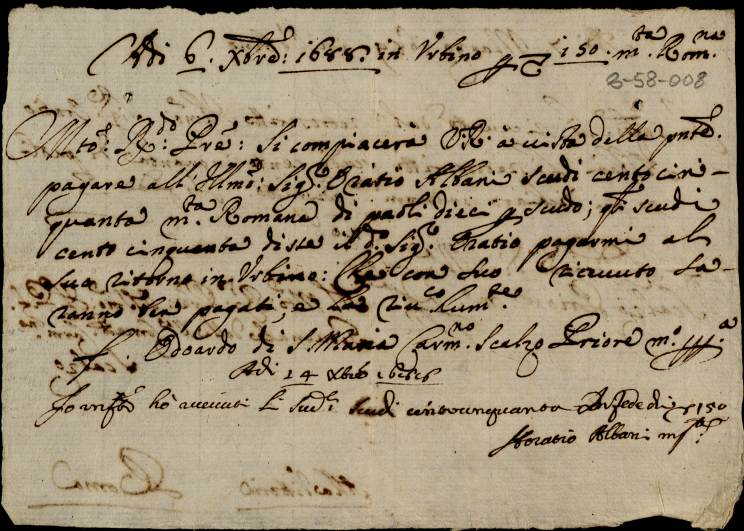 Adi 6. Xbre: 1688: in Urbino 150. mta Romna
3-58-008
Mto: Rdo: Pre: Si compiacerà V.R. à vista della pnte:
pagare all' Illmo: Sigr: Oratio Albani scudi cento cin-
quanta mta Romana di paoli dieci p scudo; scudi
cento cinquanta disse il do: Sigr: Oratio pagarmi al
suo ritorno in Urbino: Che con suo ricevuto sa-
ranno ben pagati, e la riuco humte.
f. Edoardo di S. Maria Carmno Scalzo Priore mo.
Adi 14 Xbre 1688
Io ho ricevuti li sudi scudi centocinquanta In fede di 150
Horatio Albani
Roma